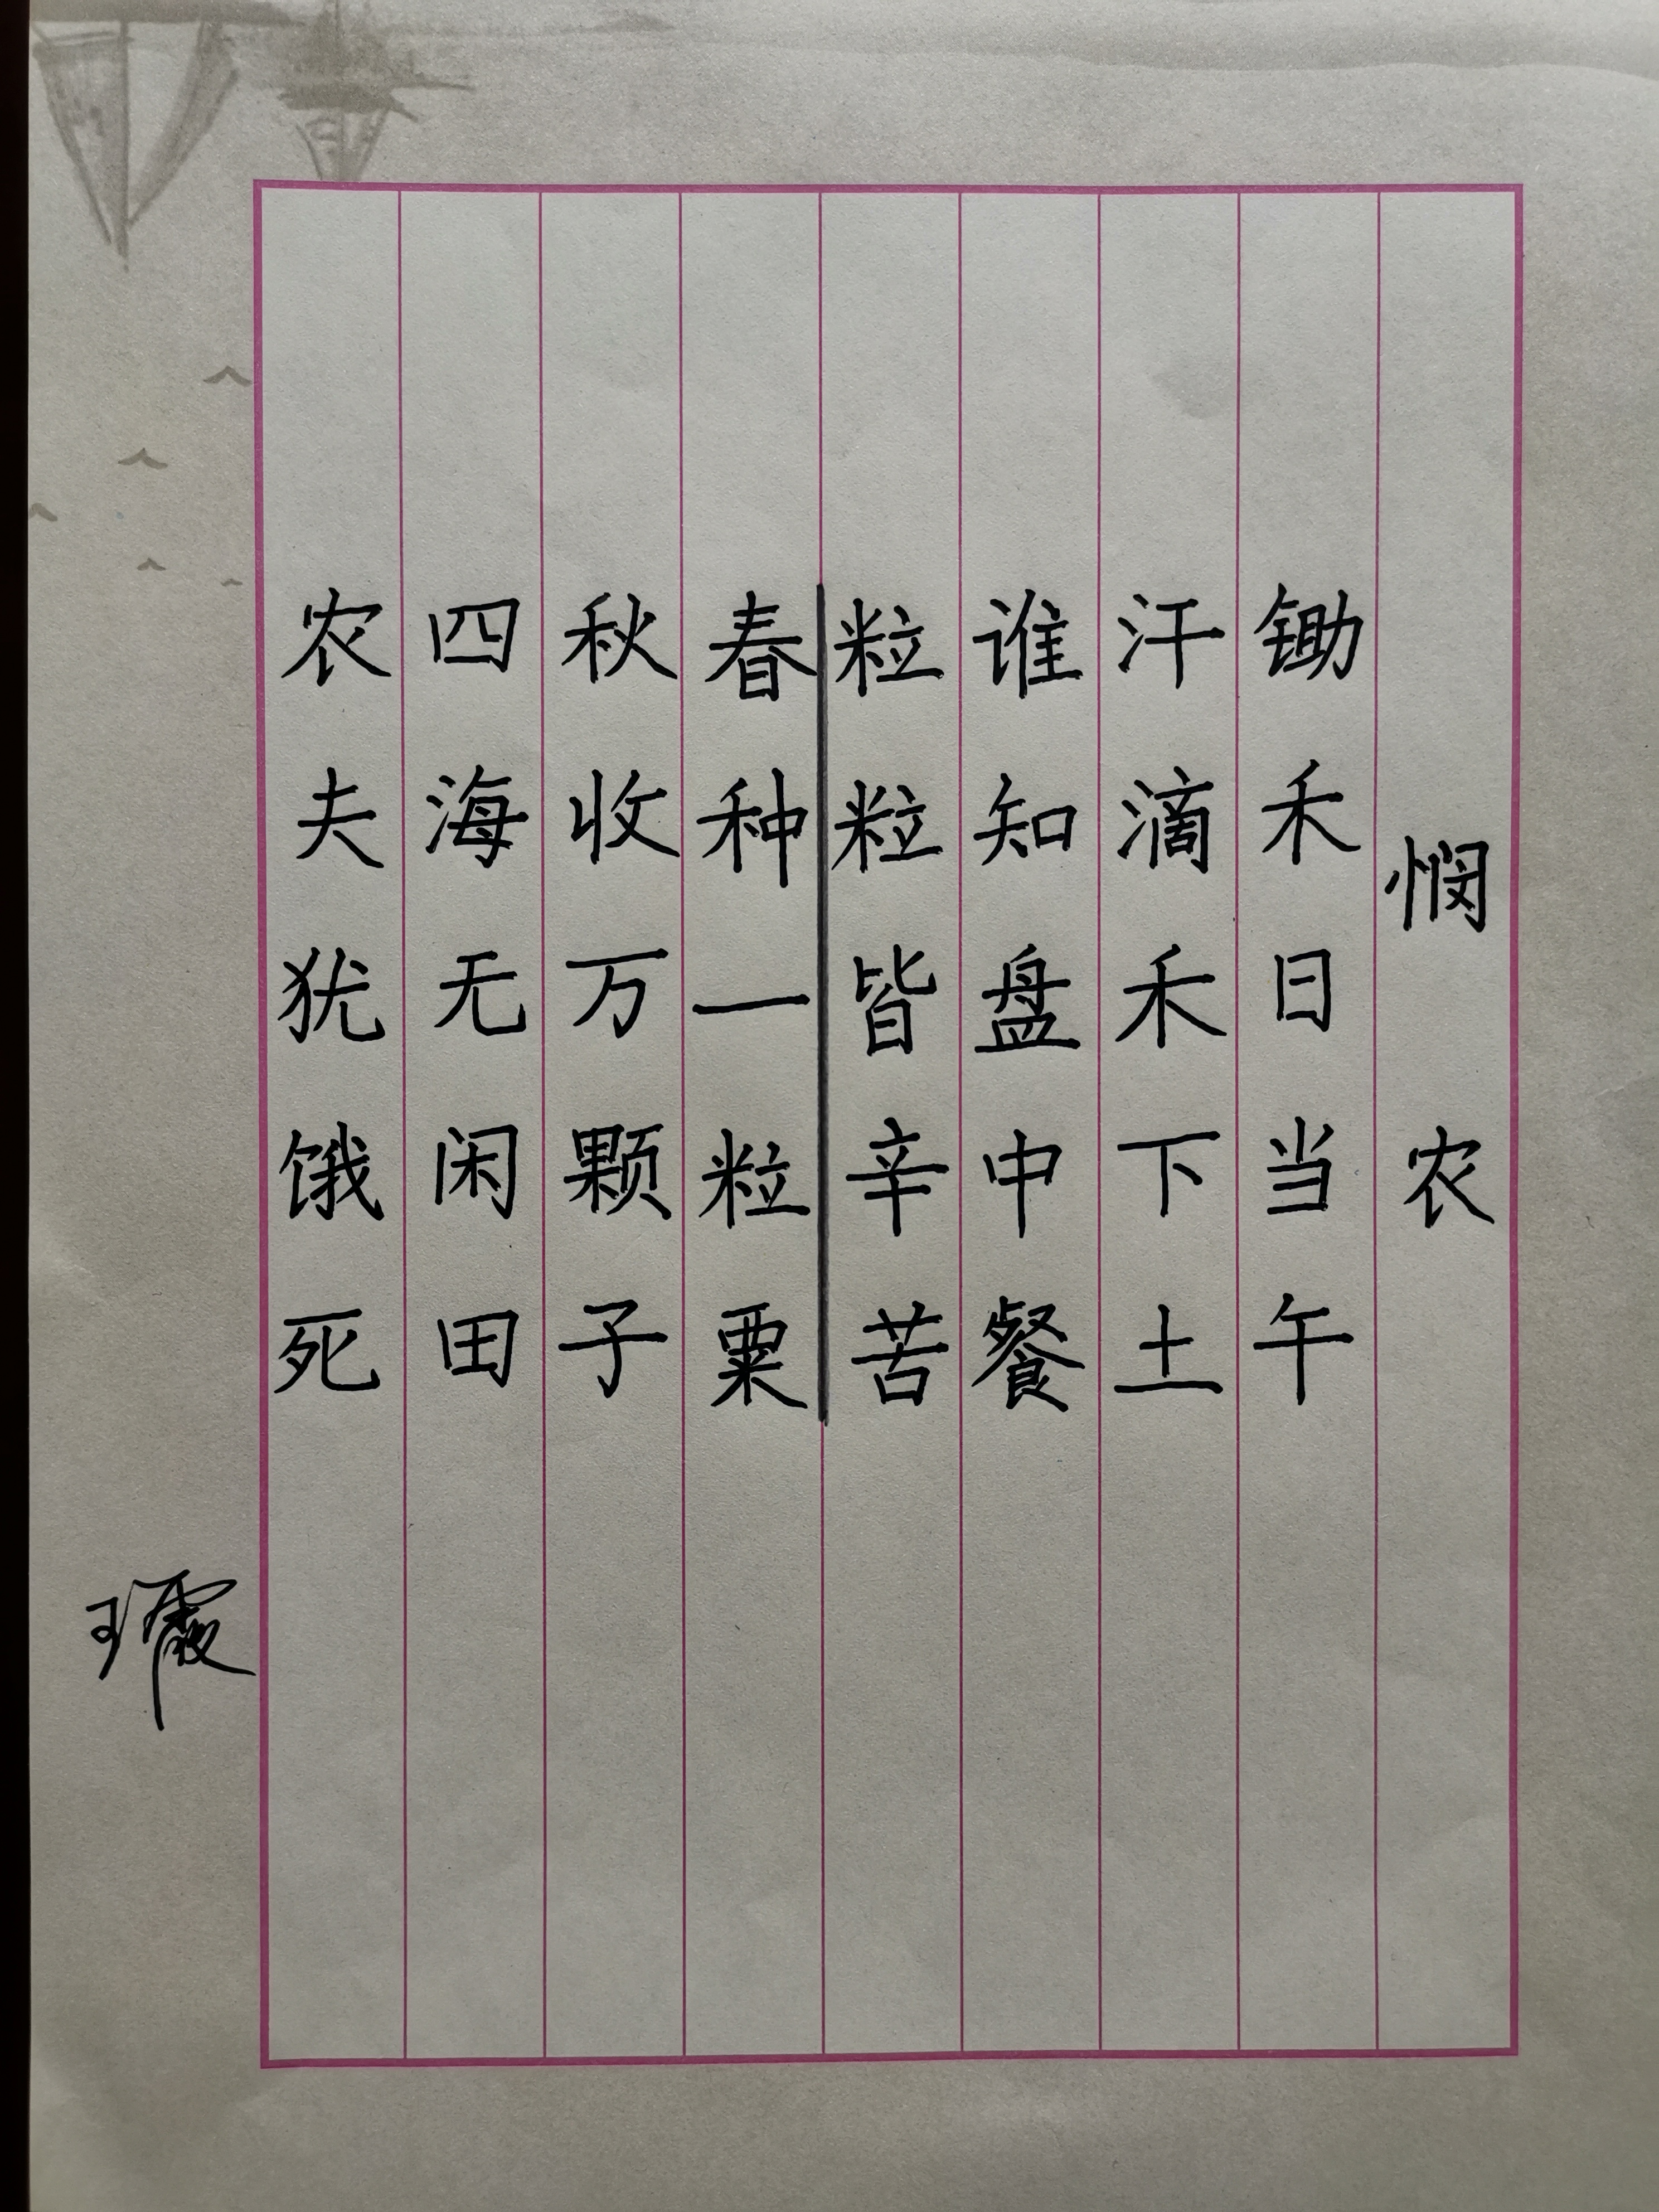 悯农
锄禾日当午
汗滴禾下土
谁知盘中餐
粒粒皆辛苦
春种一粒粟
秋收万颗子
四海无闲田
农夫犹饿死